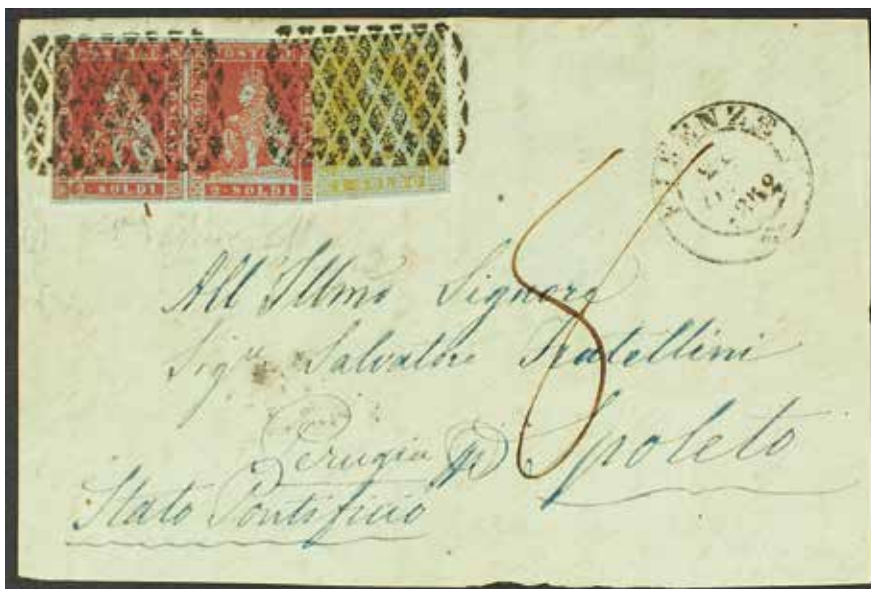 2 SOLDI 2 SOLDI 1 SOLDO
FIRENZE
1852
8
All Illmo Signore
Sigre Salvatore Fratellini
Perugia per Spoleto
Stato Pontificio